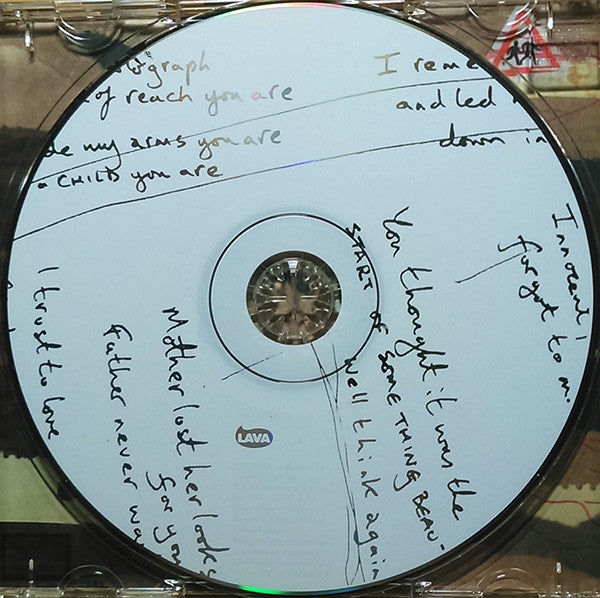 graph
of reach you are
de my arms you are
a CHILD you are
I reme
and led
down in
Innocent i
forgot to m.
You thought it was the
START OF SOMETHING BEAU-
well think again
Mother lost her looks
for you
Father never wa
I trust to love
LAVA